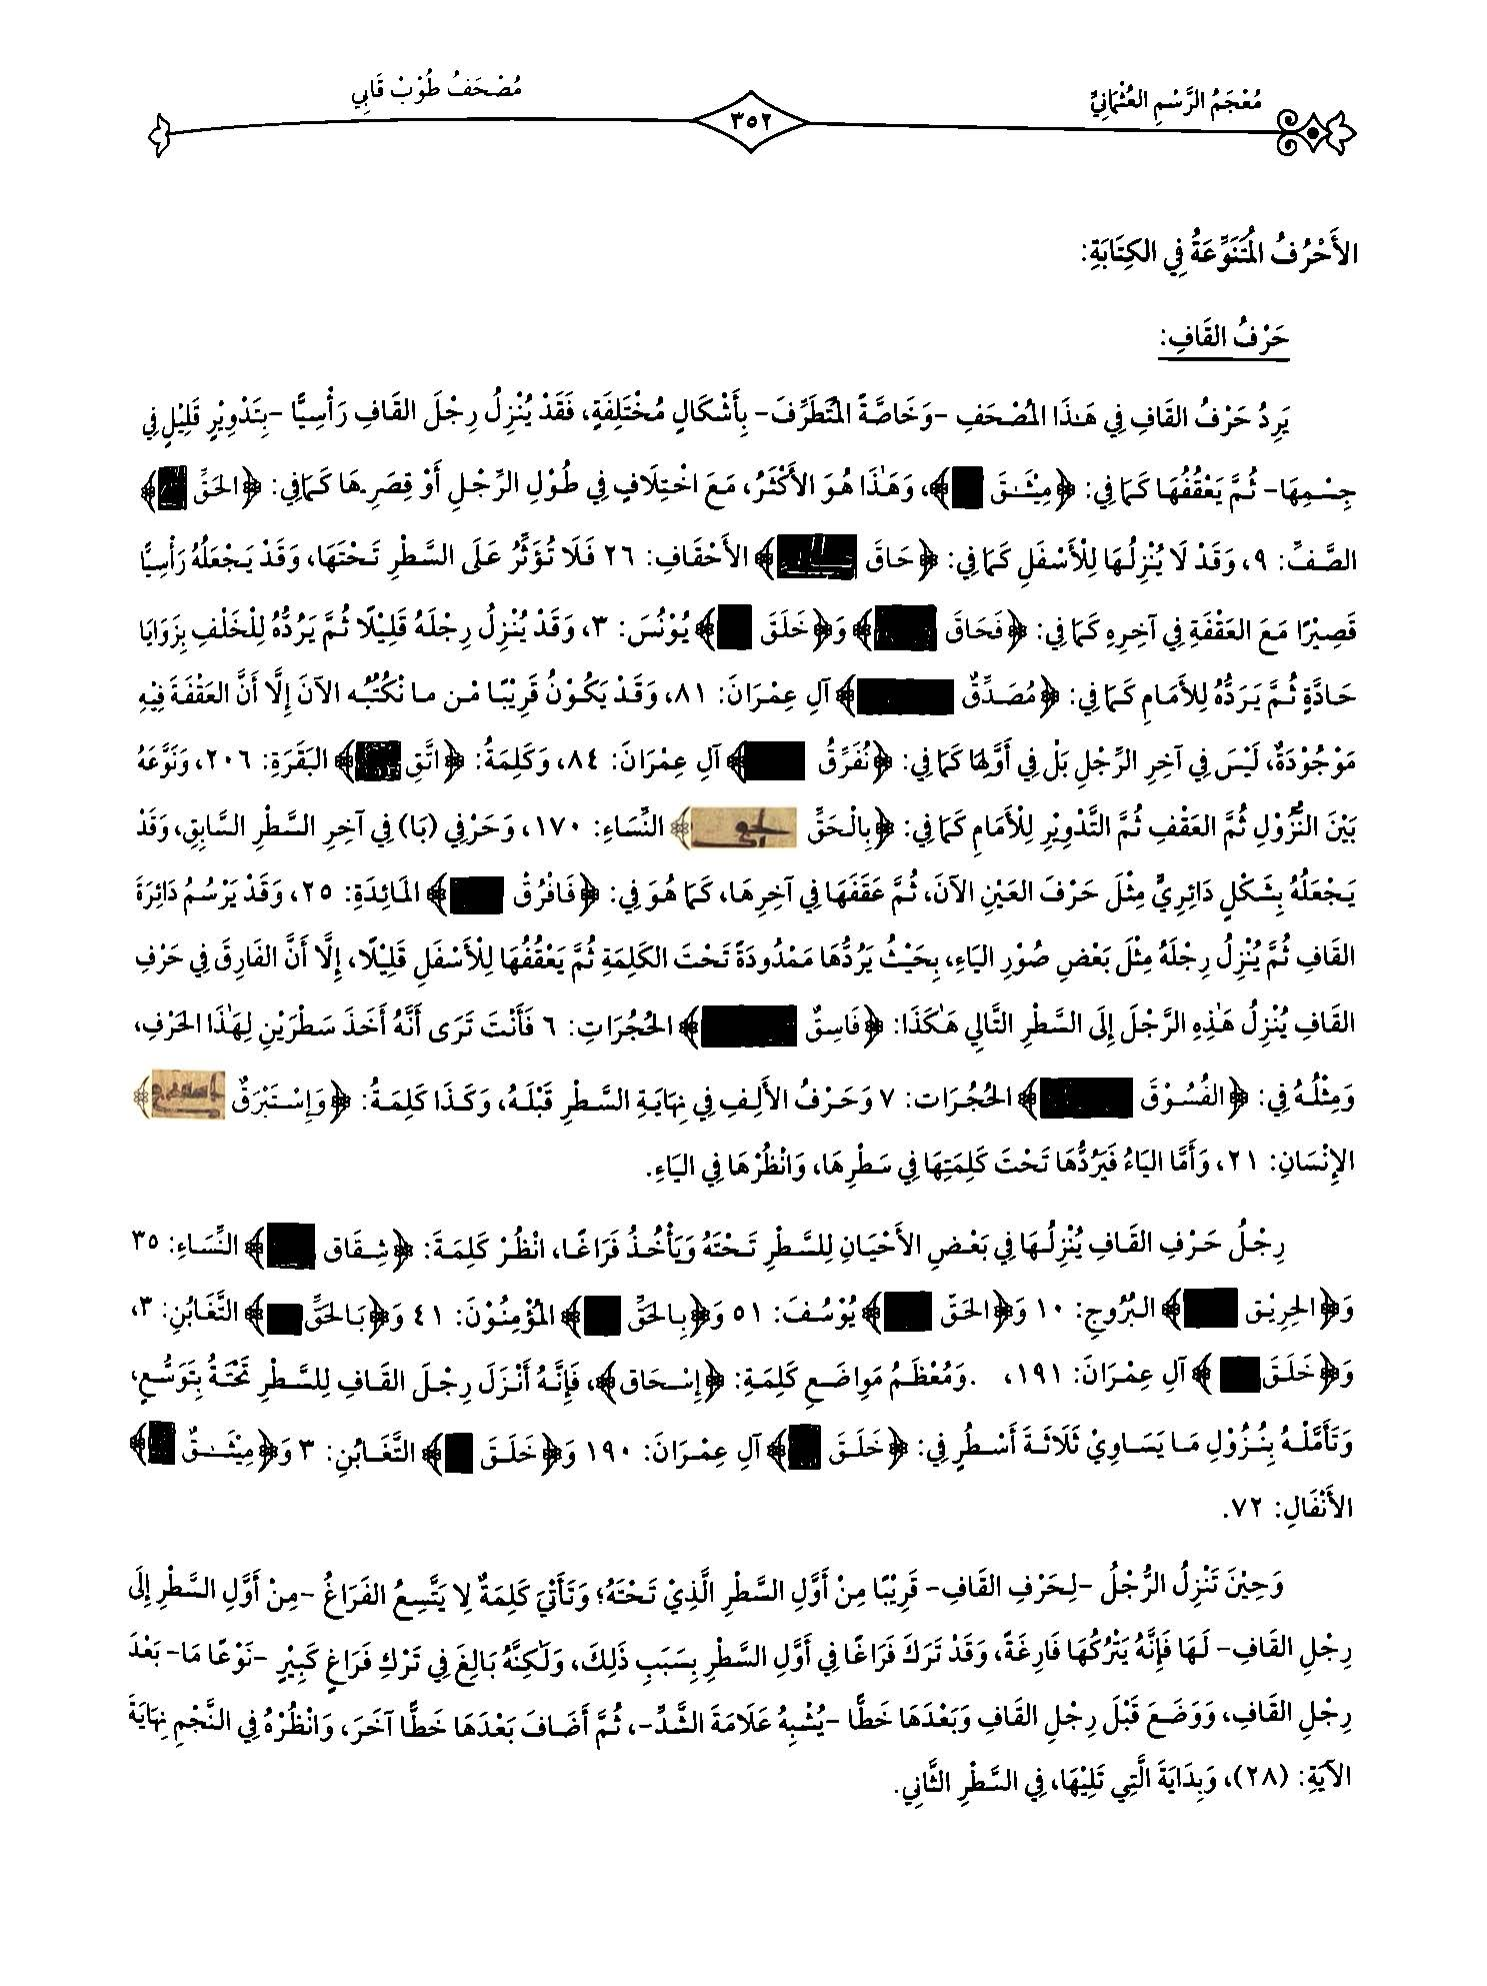 مُعْجَمُ الرَّسْمِ العُثْمَانِيِّ
٣٥٢
مُصْحَفُ طُوْبْ قَابِي
الأَحْرُفُ المُتَنَوِّعَةُ فِي الكِتَابَةِ:
حَرْفُ القَافِ:
يَرِدُ حَرْفُ القَافِ فِي هَـٰذَا المُصْحَفِ -وَخَاصَّةً المُتَطَرِّفَ- بِأَشْكَالٍ مُخْتَلِفَةٍ، فَقَدْ يُنْزِلُ رِجْلَ القَافِ رَأْسِيًّا -بِتَدْوِيْرٍ قَلِيْلٍ فِي
جِسْمِهَا- ثُمَّ يَعْقُفُهَا كَمَا فِي: ﴿مِيْثَـٰقَ ﴾، وَهَـٰذَا هُوَ الأَكْثَرُ، مَعَ اخْتِلَافٍ فِي طُوْلِ الرِّجْلِ أَوْ قِصَرِهَا كَمَا فِي: ﴿الحَقِّ ﴾
الصَّفِّ: ٩، وَقَدْ لَا يُنْزِلُهَا لِلْأَسْفَلِ كَمَا فِي: ﴿حَاقَ ﴾ الأَحْقَافِ: ٢٦ فَلَا تُؤَثِّرُ عَلَى السَّطْرِ تَحْتَهَا، وَقَدْ يَجْعَلُهُ رَأْسِيًّا
قَصِيْرًا مَعَ العَقْفَةِ فِي آخِرِهِ كَمَا فِي: ﴿فَحَاقَ ﴾ وَ﴿خَلَقَ ﴾ يُوْنُسَ: ٣، وَقَدْ يُنْزِلُ رِجْلَهُ قَلِيْلًا ثُمَّ يَرُدُّهُ لِلْخَلْفِ بِزَوَايَا
حَادَّةٍ ثُمَّ يَرَدُّهُ لِلأَمَامِ كَمَا فِي: ﴿مُصَدِّقٌ ﴾ آلِ عِمْرَانَ: ٨١، وَقَدْ يَكُوْنُ قَرِيْبًا مْن ما نَكْتُبُه الآنَ إِلَّا أَنَّ العَقْفَةَ فِيْهِ
مَوْجُوْدَةٌ، لَيْسَ فِي آخِرِ الرِّجْلِ بَلْ فِي أَوَّلِهَا كَمَا فِي: ﴿نُفَرِّقُ ﴾ آلِ عِمْرَانَ: ٨٤، وَكَلِمَةُ: ﴿اتَّقِ ﴾ البَقَرَةِ: ٢٠٦، وَنَوَّعَهُ
بَيْنَ النُّزُوْلِ ثُمَّ العَقْفِ ثُمَّ التَّدْوِيْرِ لِلْأَمَامِ كَمَا فِي: ﴿بِالْحَقِّ ﴾ النِّسَاءِ: ١٧٠، وَحَرْفي (بَا) فِي آخِرِ السَّطْرِ السَّابِقِ، وَقَدْ
يَجْعَلُهُ بِشَكْلٍ دَائِرِيٍّ مِثْلَ حَرْفَ العَيْنِ الآنَ، ثُمَّ عَقَفَهَا فِي آخِرِهَا، كَمَا هُوَ فِي: ﴿فَافْرُقْ ﴾ المَائِدَةِ: ٢٥، وَقَدْ يَرْسُمُ دَائِرَةَ
القَافِ ثُمَّ يُنْزِلُ رِجْلَهُ مِثْلَ بَعْضِ صُوْرِ اليَاءِ، بِحَيْثُ يَرُدُّهَا مَمْدُودَةً تَحْتَ الكَلِمَةِ ثُمَّ يَعْقُفُهَا لِلْأَسْفَلِ قَلِيْلًا، إِلَّا أَنَّ الفَارِقَ فِي حَرْفِ
القَافِ يُنْزِلُ هَـٰذِهِ الرَّجْلَ إِلَى السَّطْرِ التَّالِي هَـٰكَذَا: ﴿فَاسِقٌ ﴾ الحُجُرَاتِ: ٦ فَأَنْتَ تَرَى أَنَّهُ أَخَذَ سَطْرَيْنِ لِهَـٰذَا الحَرْفِ،
وَمِثْلُهُ فِي: ﴿الفُسُوْقَ ﴾ الحُجُرَات: ٧ وَحَرْفُ الأَلِفِ فِي نِهَايَةِ السَّطْرِ قَبْلَهُ، وَكَذَا كَلِمَةُ: ﴿وَإِسْتَبْرَقٌ ﴾
الإِنْسَانِ: ٢١، وَأَمَّا اليَاءُ فَيَرُدُّهَا تَحْتَ كَلِمَتِهَا فِي سَطْرِهَا، وَانْظُرْهَا فِي اليَاءِ.
رِجْلُ حَرْفِ القَافِ يُنْزِلُهَا فِي بَعْضِ الأَحْيَانِ لِلسَّطْرِ تَحْتَهُ وَيَأْخُذُ فَرَاغًا، انْظُرْ كَلِمَةَ: ﴿شِقَاق ﴾ النِّسَاءِ: ٣٥
وَ﴿الحَرِيْق ﴾ البُرُوجِ: ١٠ وَ﴿الحَقّ ﴾ يُوْسُفَ: ٥١ وَ﴿بِالحَقِّ ﴾ المُؤْمِنُوْنَ: ٤١ وَ﴿بَالحَقِّ ﴾ التَّغَابُنِ: ٣،
وَ﴿خَلَقَ ﴾ آلِ عِمْرَانَ: ١٩١، .وَمُعْظَمُ مَوَاضَعِ كَلِمَةِ: ﴿إِسْحَاق﴾، فَإِنَّهُ أَنْزَلَ رِجْلَ القَافِ لِلسَّطْرِ تَحْتَهُ بِتَوَسُّعٍ،
وَتَأَمَّلْهُ بِنُزُوْلِ مَا يَسَاوِيْ ثَلَاثَةَ أَسْطُرٍ فِي: ﴿خَلَقَ ﴾ آلِ عِمْرَانَ: ١٩٠ وَ﴿خَلَقَ ﴾ التَّغَابُنِ: ٣ وَ﴿مِيْثَـٰقٌ ﴾
الأَنْفَالِ: ٧٢.
وَحِيْنَ تَنْزِلُ الرُّجْلُ -لِحَرْفِ القَافِ- قَرِيْبًا مِنْ أَوَّلِ السَّطْرِ الَّذِيْ تَحْتَهُ؛ وَتَأَتْيَ كَلِمَةٌ لِا يَتَّسِعُ الفَرَاغُ -مِنْ أَوَّلِ السَّطْرِ إِلَى
رِجْلِ القَافِ- لَهَا فَإِنَّهُ يَتْرُكُهَا فَارِغَةً، وَقَدْ تَرَكَ فَرَاغًا فِي أَوَّلِ السَّطْرِ بِسَبَبِ ذَلِكَ، وَلَـٰكِنَّهُ بَالِغَ فِي تَرْكِ فَرَاغٍ كَبِيْرٍ -نَوْعًا مَا- بَعْدَ
رِجْلِ القَافِ، وَوَضَعَ قَبْلَ رِجْلِ القَافِ وَبَعْدَهَا خَطًّا -يُشْبِهُ عَلَامَةَ الشَّدِّ-، ثُمَّ أَضَافَ بَعْدَهَا خَطًّا آخَرَ، وَانْظُرْهُ فِي النَّجْمِ نِهَايَةَ
الآيَةِ: (٢٨)، وَبِدَايَةَ الَّتِي تَلِيْهَا، فِي السَّطْرِ الثَّانِي.